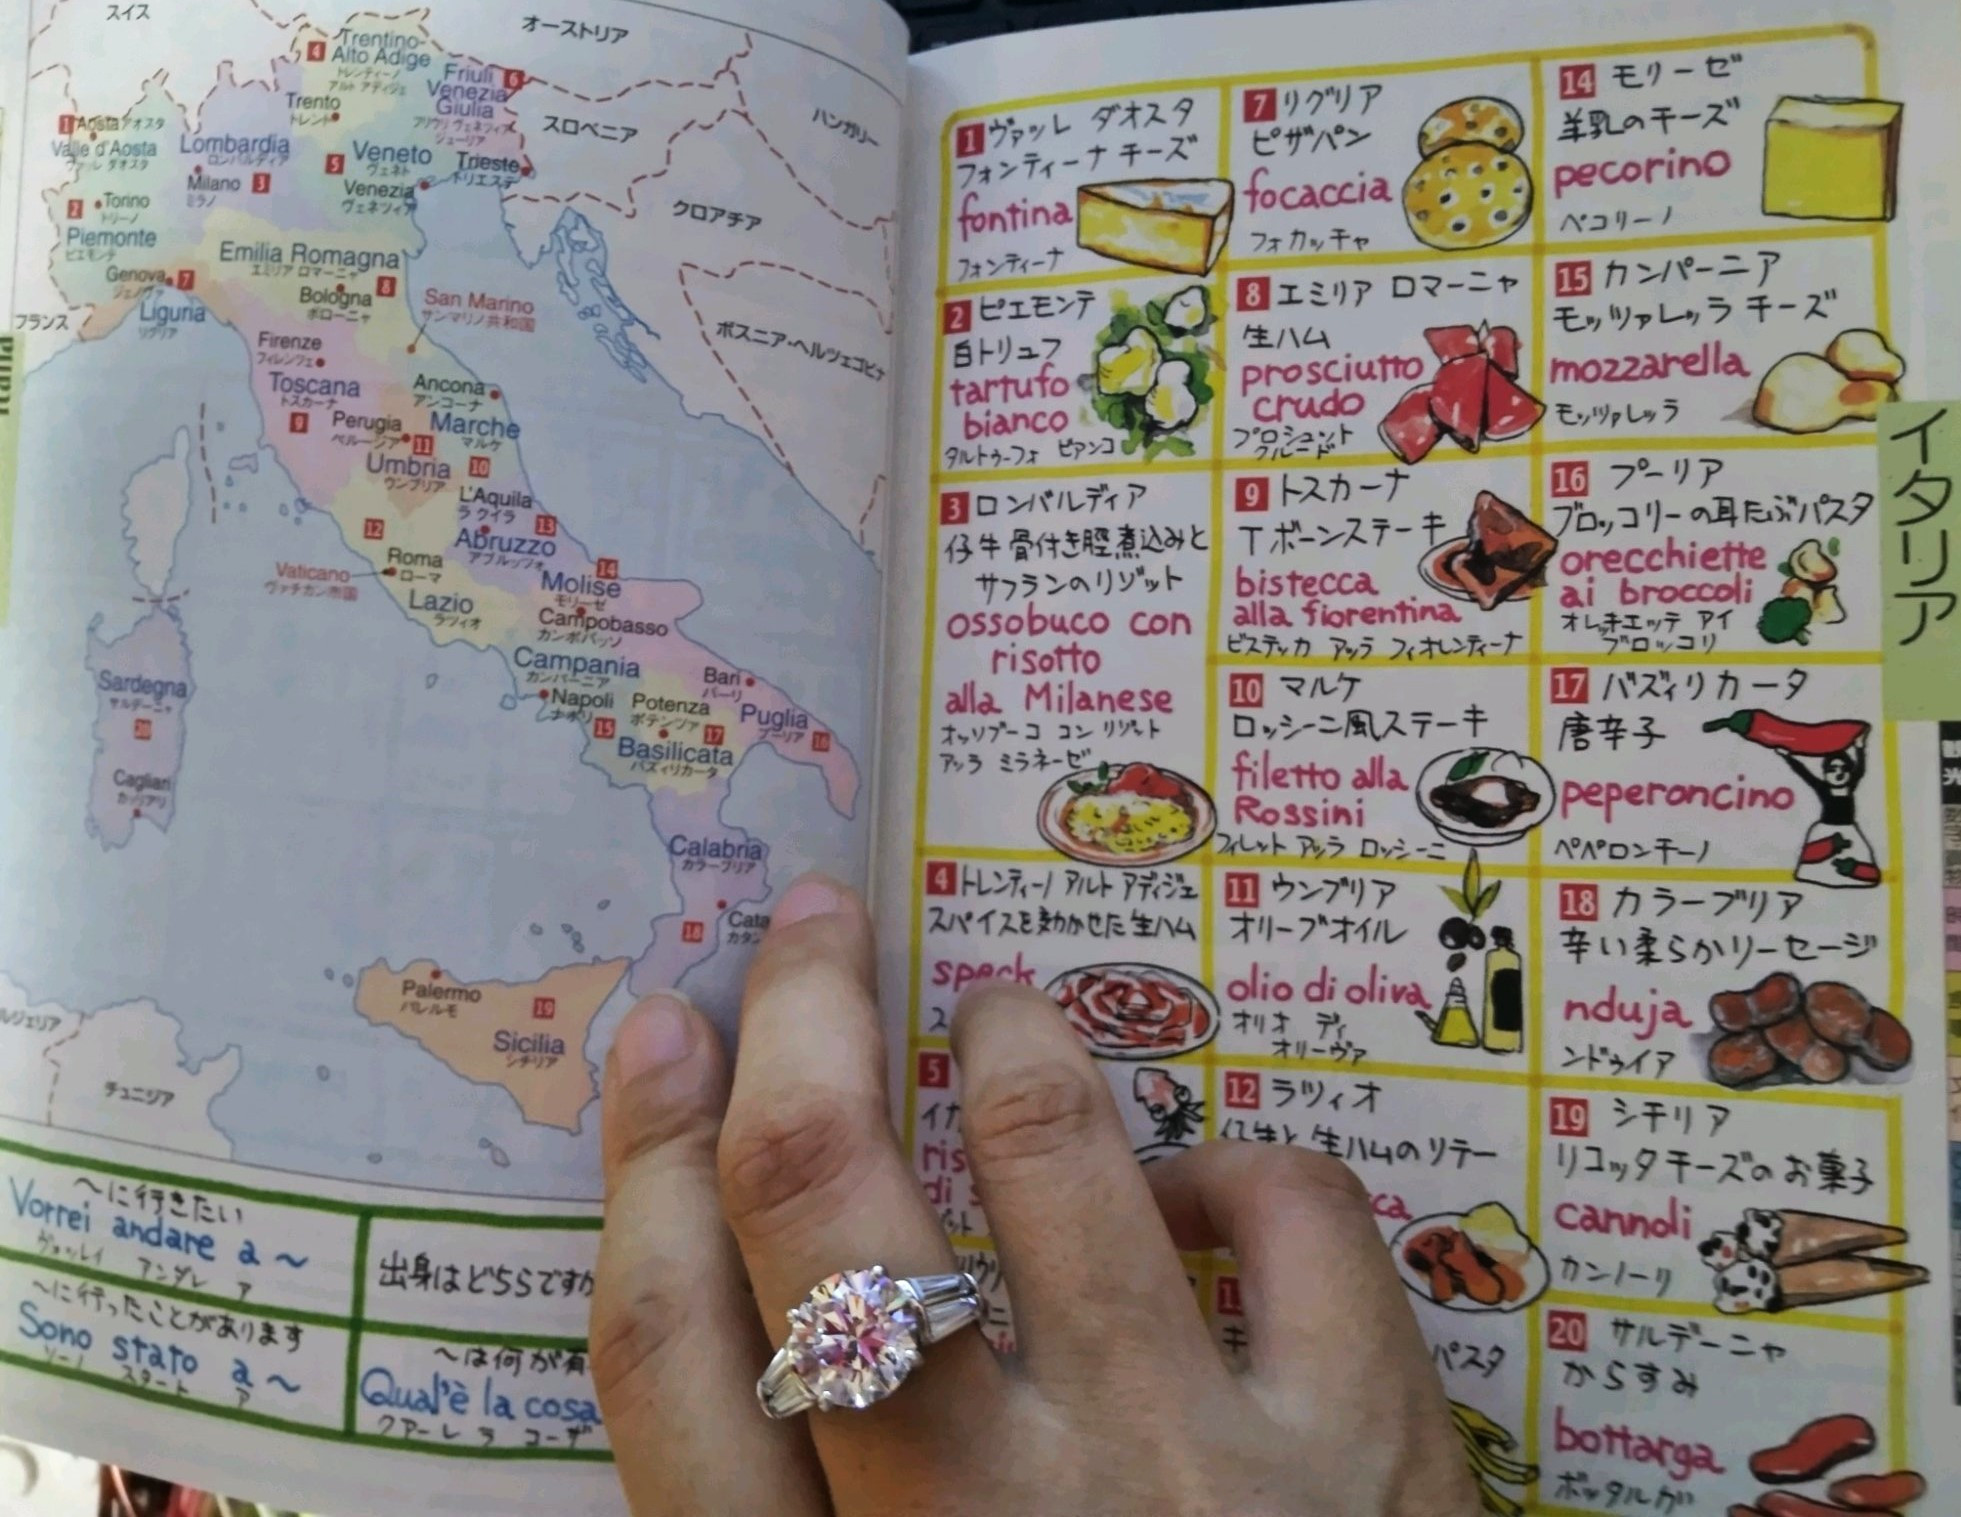 スイス
オーストリア
ハンガリー
スロベニア
クロアチア
ボスニア・ヘルツェゴビナ
フランス
チュニジア
4
Trentino-
Alto Adige
トレンティーノ
アルト アディジェ
Friuli 6
Venezia
Giulia
フリウリ ヴェネツィア
ジューリア
Trento
トレント
1 Aosta アオスタ
Valle d'Aosta
ヴァッレ ダオスタ
Lombardia
ロンバルディア
Milano 3
ミラノ
5 Veneto
ヴェネト
Venezia
ヴェネツィア
Trieste
トリエステ
2 Torino
トリーノ
Piemonte
ピエモンテ
Genova 7
ジェノヴァ
Liguria
リグリア
Emilia Romagna
エミリア ロマーニャ
Bologna 8
ボローニャ
San Marino
サンマリノ共和国
Firenze
フィレンツェ
Toscana
トスカーナ
9
Ancona
アンコーナ
Marche
マルケ
10
Perugia
ペルージア
11
Umbria
ウンブリア
L'Aquila
ラクイラ
13
Abruzzo
アブルッツォ
12
Roma
ローマ
Vaticano
ヴァチカン市国
Lazio
ラツィオ
14
Molise
モリーゼ
Campobasso
カンポバッソ
Campania
カンパーニア
Napoli
ナポリ
15
Potenza
ポテンツァ
17
Basilicata
バズィリカータ
Bari
バーリ
Puglia
プーリア
16
Sardegna
サルデーニャ
20
Cagliari
カッリアリ
Calabria
カラーブリア
18
Cata
カタン
Palermo
パレルモ
19
Sicilia
シチリア
〜に行きたい
Vorrei andare a 〜
ヴォッレイ アンダレ ア
〜に行ったことがあります
Sono stato a 〜
ソーノ スタート ア
出身はどちらですか
〜は何が有
Qual'è la cosa
クアーレ ラ コーザ
1 ヴァッレ ダオスタ
フォンティーナ チーズ
fontina
フォンティーナ
2 ピエモンテ
白トリュフ
tartufo
bianco
タルトゥーフォ ビアンコ
3 ロンバルディア
仔牛骨付き脛煮込みと
サフランのリゾット
ossobuco con
risotto
alla Milanese
オッソブーコ コン リゾット
アッラ ミラネーゼ
4 トレンティーノ アルト アディジェ
スパイスを効かせた生ハム
speck
ス
5
イカ
ris
di s
7 リグリア
ピザパン
focaccia
フォカッチャ
8 エミリア ロマーニャ
生ハム
prosciutto
crudo
プロシュット
クルード
9 トスカーナ
Tボーンステーキ
bistecca
alla fiorentina
ビステッカ アッラ フィオレンティーナ
10 マルケ
ロッシーニ風ステーキ
filetto alla
Rossini
フィレット アッラ ロッシーニ
11 ウンブリア
オリーブオイル
olio di oliva
オリオ ディ
オリーヴァ
12 ラツィオ
仔牛と生ハムのソテー
ca
パスタ
14 モリーゼ
羊乳のチーズ
pecorino
ペコリーノ
15 カンパーニア
モッツァレッラ チーズ
mozzarella
モッツァレッラ
16 プーリア
ブロッコリーの耳たぶパスタ
orecchiette
ai broccoli
オレッキエッテ アイ
ブロッコリ
17 バズィリカータ
唐辛子
peperoncino
ペペロンチーノ
18 カラーブリア
辛い柔らかソーセージ
nduja
ンドゥイア
19 シチリア
リコッタチーズのお菓子
cannoli
カンノーリ
20 サルデーニャ
からすみ
bottarga
ボッタルガ
イタリア